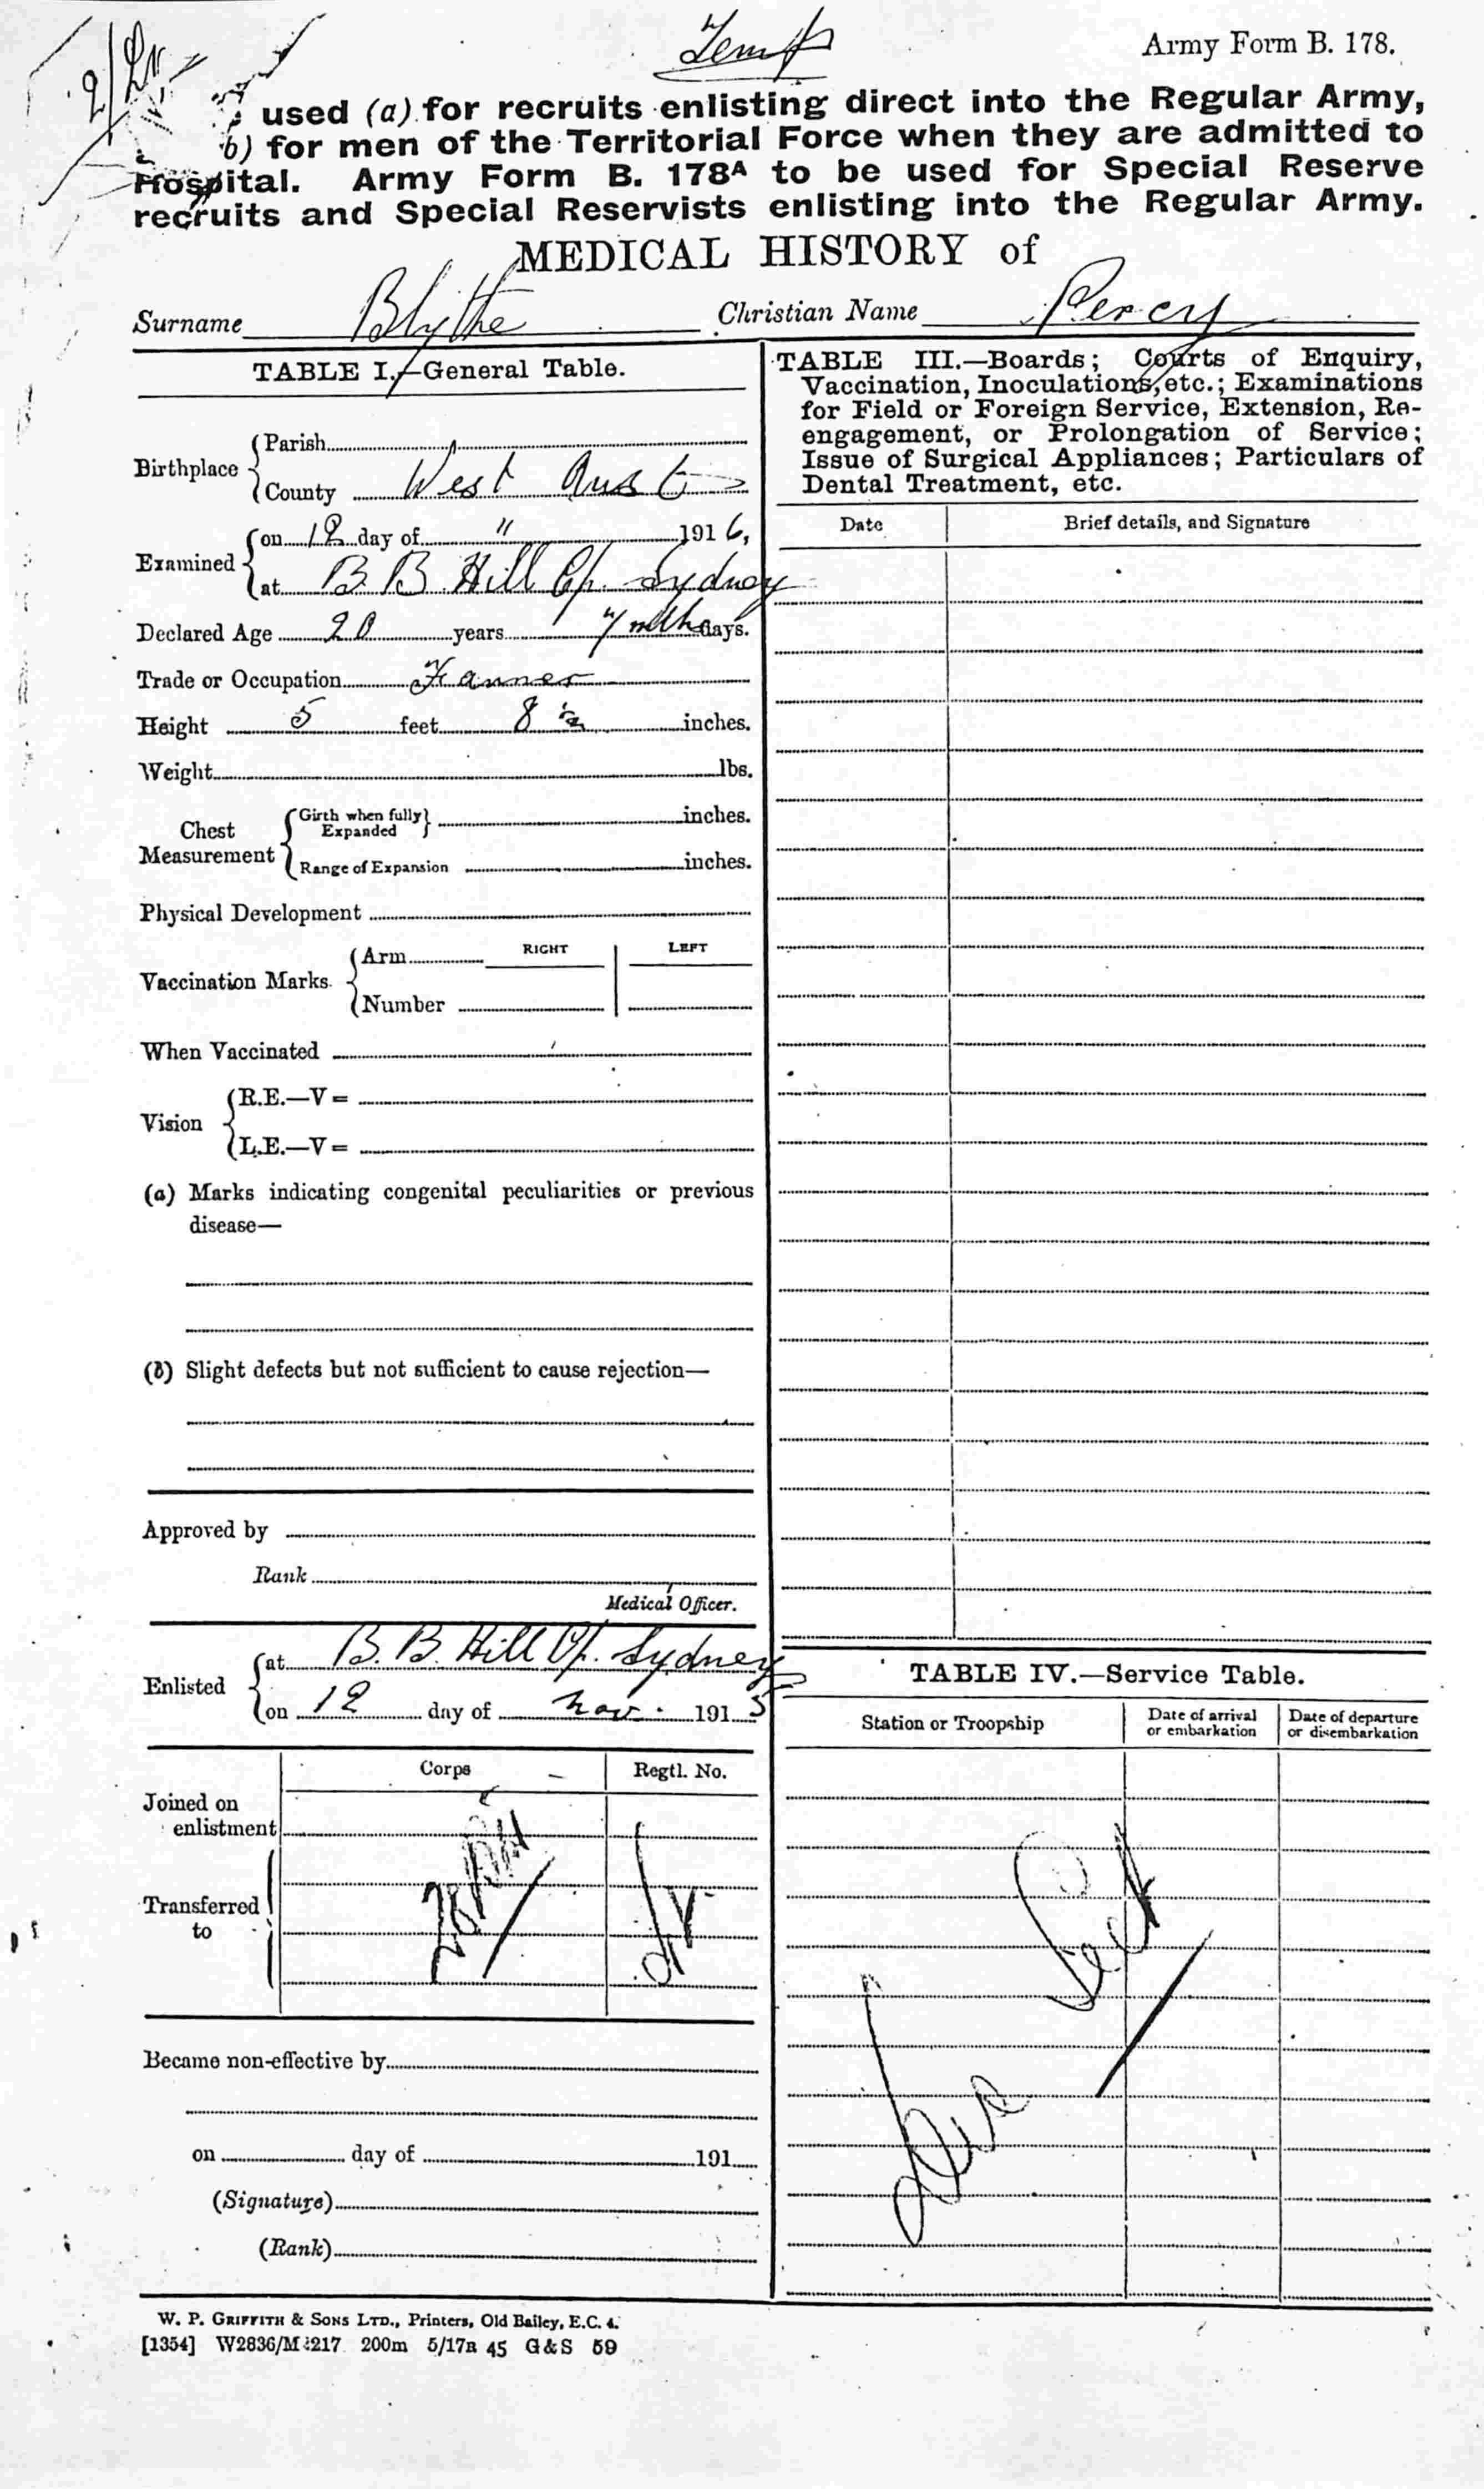 Temp
Army Form B. 178.
2/Lt
used (a) for recruits enlisting direct into the Regular Army,
b) for men of the Territorial Force when they are admitted to
Hospital. Army Form B. 178A to be used for Special Reserve
recruits and Special Reservists enlisting into the Regular Army.
MEDICAL HISTORY of
Surname Blythe Christian Name Percy
TABLE I.—General Table.
Birthplace
Parish
County West Aust
Examined
on 12 day of " 1916,
at B. B. Hill Cp. Sydney
Declared Age 20 years 7 mths days.
Trade or Occupation Farmer
Height 5 feet 8 ½ inches.
Weight lbs.
Chest Measurement
Girth when fully Expanded inches.
Range of Expansion inches.
Physical Development
Vaccination Marks
RIGHT LEFT
Arm
Number
When Vaccinated
Vision
R.E.—V =
L.E.—V =
(a) Marks indicating congenital peculiarities or previous
disease—
(b) Slight defects but not sufficient to cause rejection—
Approved by
Rank
Medical Officer.
Enlisted
at B. B. Hill Cp. Sydney
on 12 day of Nov. 1915
Corps Regtl. No.
Joined on
enlistment
Transferred
to
Became non-effective by
on day of 191
(Signature)
(Rank)
TABLE III.—Boards; Courts of Enquiry,
Vaccination, Inoculations, etc.; Examinations
for Field or Foreign Service, Extension, Re-
engagement, or Prolongation of Service;
Issue of Surgical Appliances; Particulars of
Dental Treatment, etc.
Date Brief details, and Signature
TABLE IV.—Service Table.
Station or Troopship
Date of arrival
or embarkation
Date of departure
or disembarkation
W. P. GRIFFITH & SONS LTD., Printers, Old Bailey, E.C. 4.
[1354] W2836/M1217 200m 5/17R 45 G & S 59